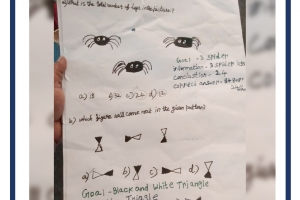 a) What is the total number of legs in the picture?
Goal - 3 spider
information - 3 spider legs
conclusion - 24
correct answer -
a) 18 b) 32 c) 24 d) 12
b) which figure will come next in the given pattern?
a) b) c) d)
Goal - Black and White Triangle